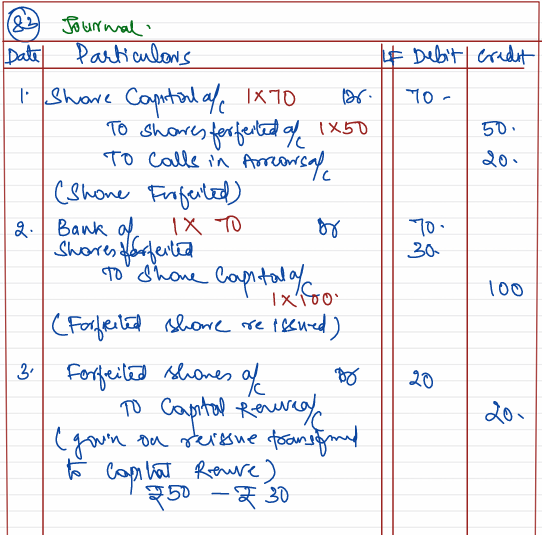 Q3 Journal.
Date Particulars LF Debit Credit
1. Share Capital a/c 1×70 Dr. 70 -
To shares forfeited a/c 1×50 50.
To Calls in Arrears a/c 20.
(Share Forfeited)
2. Bank a/c 1×70 Dr 70.
Shares forfeited 30-
To Share Capital a/c 100
1×100.
(Forfeited share re issued)
3. Forfeited shares a/c Dr 20
To Capital Reserve a/c 20.
(gain on reissue transferred
to Capital Reserve)
₹50 - ₹30